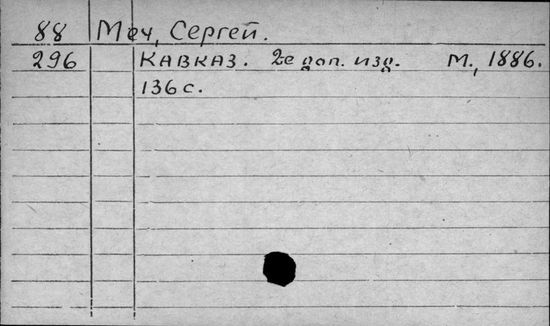 88 Меч, Сергей.
296 Кавказ. 2е доп. изд. М., 1886.
136 с.